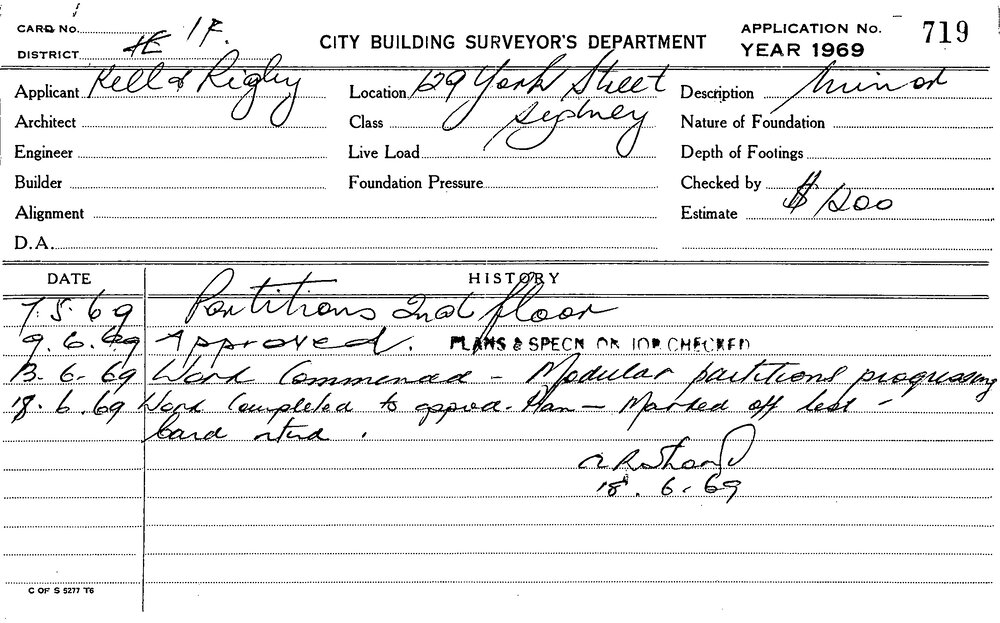 CARD No.
DISTRICT 1F.
CITY BUILDING SURVEYOR'S DEPARTMENT
APPLICATION No. 719
YEAR 1969
Applicant Kell & Rigby
Location 129 York Street
Description Minor
Architect
Class Sydney
Nature of Foundation
Engineer
Live Load
Depth of Footings
Builder
Foundation Pressure
Checked by
Alignment
Estimate $1200
D.A.
DATE HISTORY
7.5.69 Partitions 2nd floor
9.6.69 Approved. PLANS & SPECN ON JOB CHECKED
13.6.69 Work Commenced - Modular partitions progressing
18.6.69 Work Completed to approd. Plan - Marked off list -
Card retnd.
18.6.69
C OF S 5277 T6